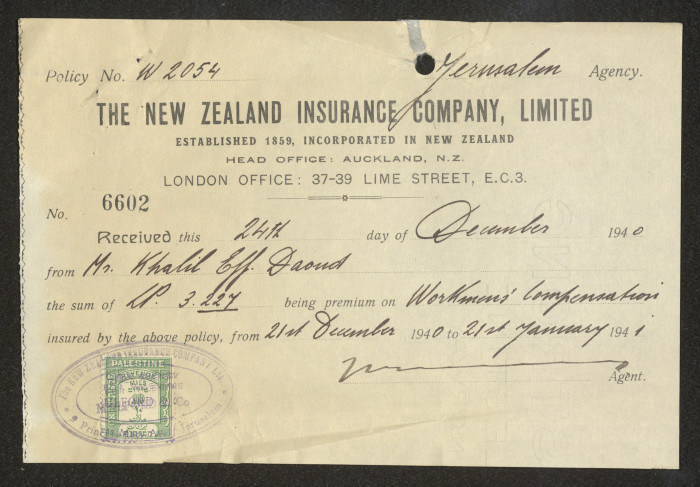 Policy No. W 2054 Jerusalem Agency.
THE NEW ZEALAND INSURANCE COMPANY, LIMITED
ESTABLISHED 1859, INCORPORATED IN NEW ZEALAND
HEAD OFFICE: AUCKLAND, N.Z.
LONDON OFFICE: 37-39 LIME STREET, E.C.3.
No. 6602
Received this 24th day of December 1940
from Mr. Khalil Eff. Daoud
the sum of LP. 3.227 being premium on Workmens' Compensation
insured by the above policy, from 21st December 1940 to 21st January 1941
Agent.
THE NEW ZEALAND INSURANCE COMPANY LTD.
PALESTINE
REVENUE
MILS
Jerusalem